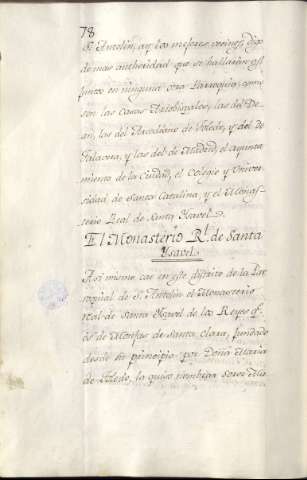 78
S. Antolin, ay los mejores vecinos, digo
de mas authoridad que se hallarán assi
juntos en ninguna otra Parroquia; como
son las Casas Arzobispales, las del De-
an, las del Arcediano de Toledo, y del de
Talavera, y las del de Madrid, el ayunta-
miento de la Ciudad, el Colegio y Univer-
sidad de Santa Catalina, y el Monas-
terio Real de Santa Ysavel.
El Monasterio Rl. de Santa
Ysavel.
Asi mismo cae en este distrito de la Par-
roquial de S. Antolin el Monasterio
Real de Santa Ysavel de los Reyes q.
es de Monjas de Santa Clara, fundado
desde su principio por Doña Maria
de Toledo, la quiso nombrar soror Ma-